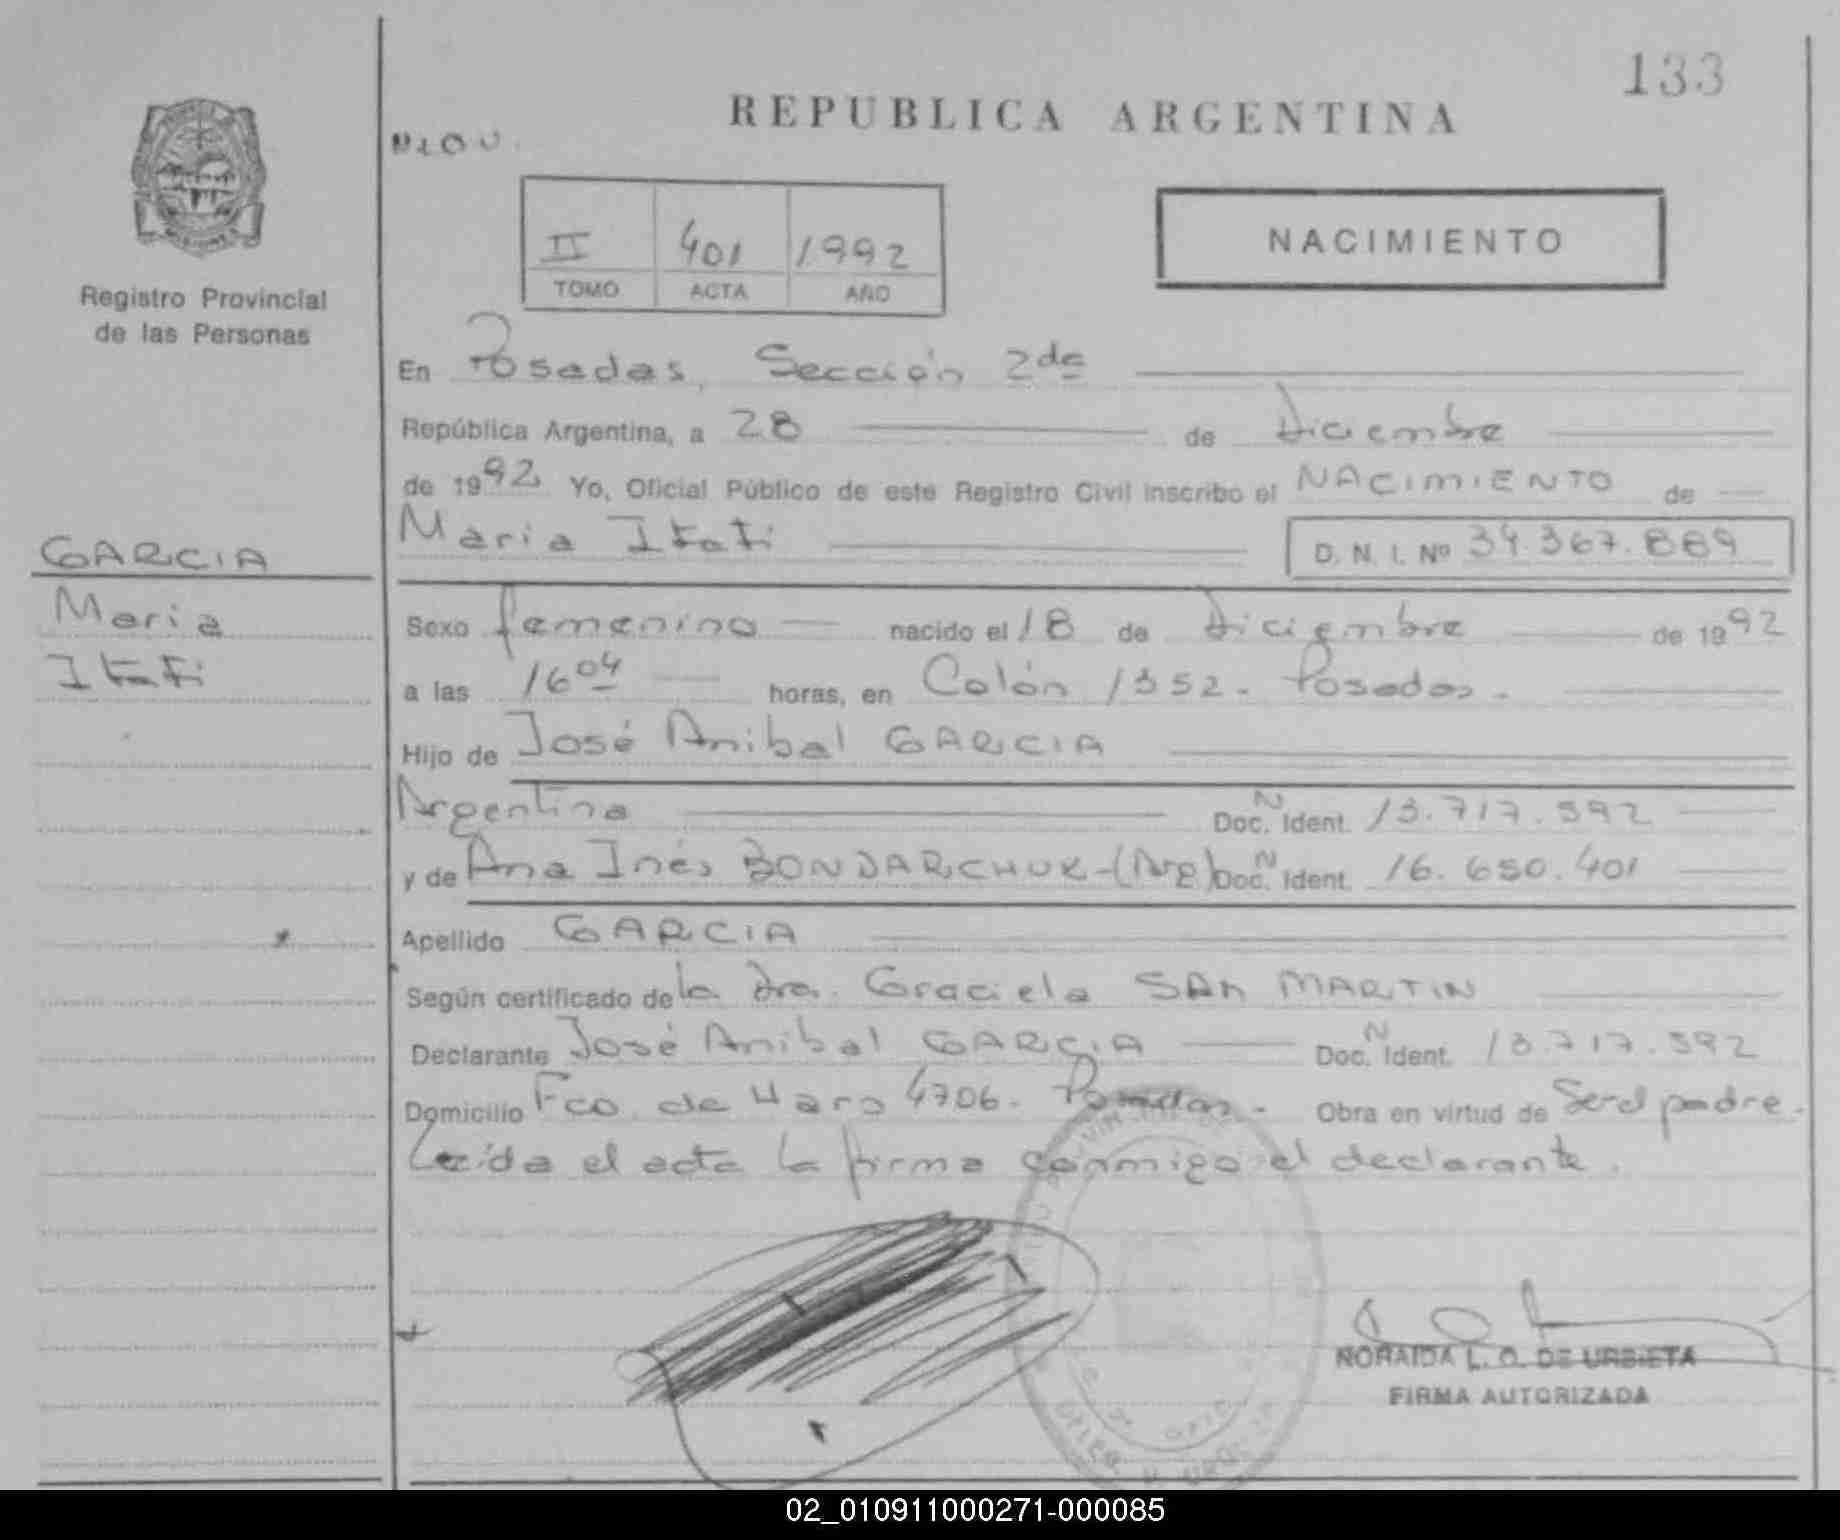 133
REPUBLICA ARGENTINA
NACIMIENTO
II 401 1992
TOMO ACTA AÑO
Registro Provincial
de las Personas
GARCIA
Maria
Itati
En Posadas, Sección 2da
República Argentina, a 28 de Diciembre
de 1992 Yo, Oficial Público de este Registro Civil inscribo el NACIMIENTO de
Maria Itati D. N. I. Nº 34.367.889
Sexo femenino nacido el 18 de Diciembre de 1992
a las 16 04 horas, en Colón 1352. Posadas.
Hijo de José Anibal GARCIA
Argentina Doc. N Ident. 13.717.592
y de Ana Inés BONDARCHUK-(Arg) Doc. N Ident. 16.650.401
Apellido GARCIA
Según certificado de la Dra. Graciela SAN MARTIN
Declarante José Anibal GARCIA Doc. N Ident. 13.717.592
Domicilio Fco. de Haro 4706. Posadas. Obra en virtud de Ser el padre.
Leída el acta la firma conmigo el declarante.
NORAIDA L. O. DE URBIETA
FIRMA AUTORIZADA
02_010911000271-000085